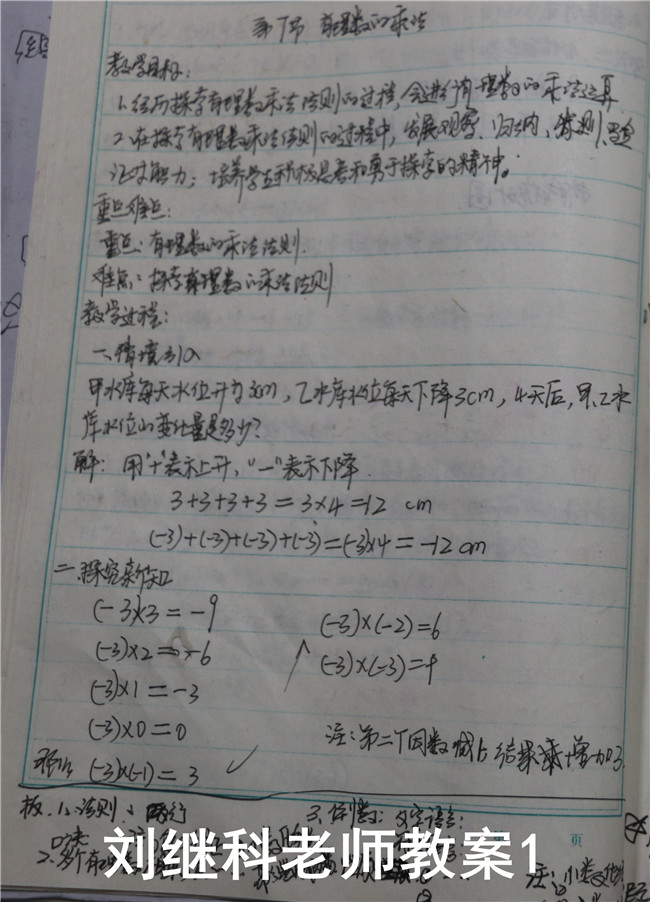 第7节 有理数的乘法
教学目标:
1.经历探索有理数乘法法则的过程,会进行有理数的乘法运算
2.在探索有理数乘法法则的过程中,发展观察、归纳、猜测、验
证等能力;培养学生积极思考和勇于探索的精神。
重点难点:
重点:有理数的乘法法则.
难点:探索有理数的乘法法则
教学过程:
一、情境引入
甲水库每天水位升高3cm,乙水库水位每天下降3cm,4天后,甲、乙水
库水位的变化量是多少?
解:用"+"表示上升,"一"表示下降.
3+3+3+3=3×4=12 cm
(-3)+(-3)+(-3)+(-3)=(-3)×4=-12cm
二.探究新知
(-3)×3=-9
(-3)×2=-6
(-3)×1=-3
(-3)×0=0
(-3)×(-1)=3
(-3)×(-2)=6
(-3)×(-3)=9
注:第二个因数减1,结果增加3.
板.1.法则:
3.
文字语言:
2.
页
注:小数
刘继科老师教案1